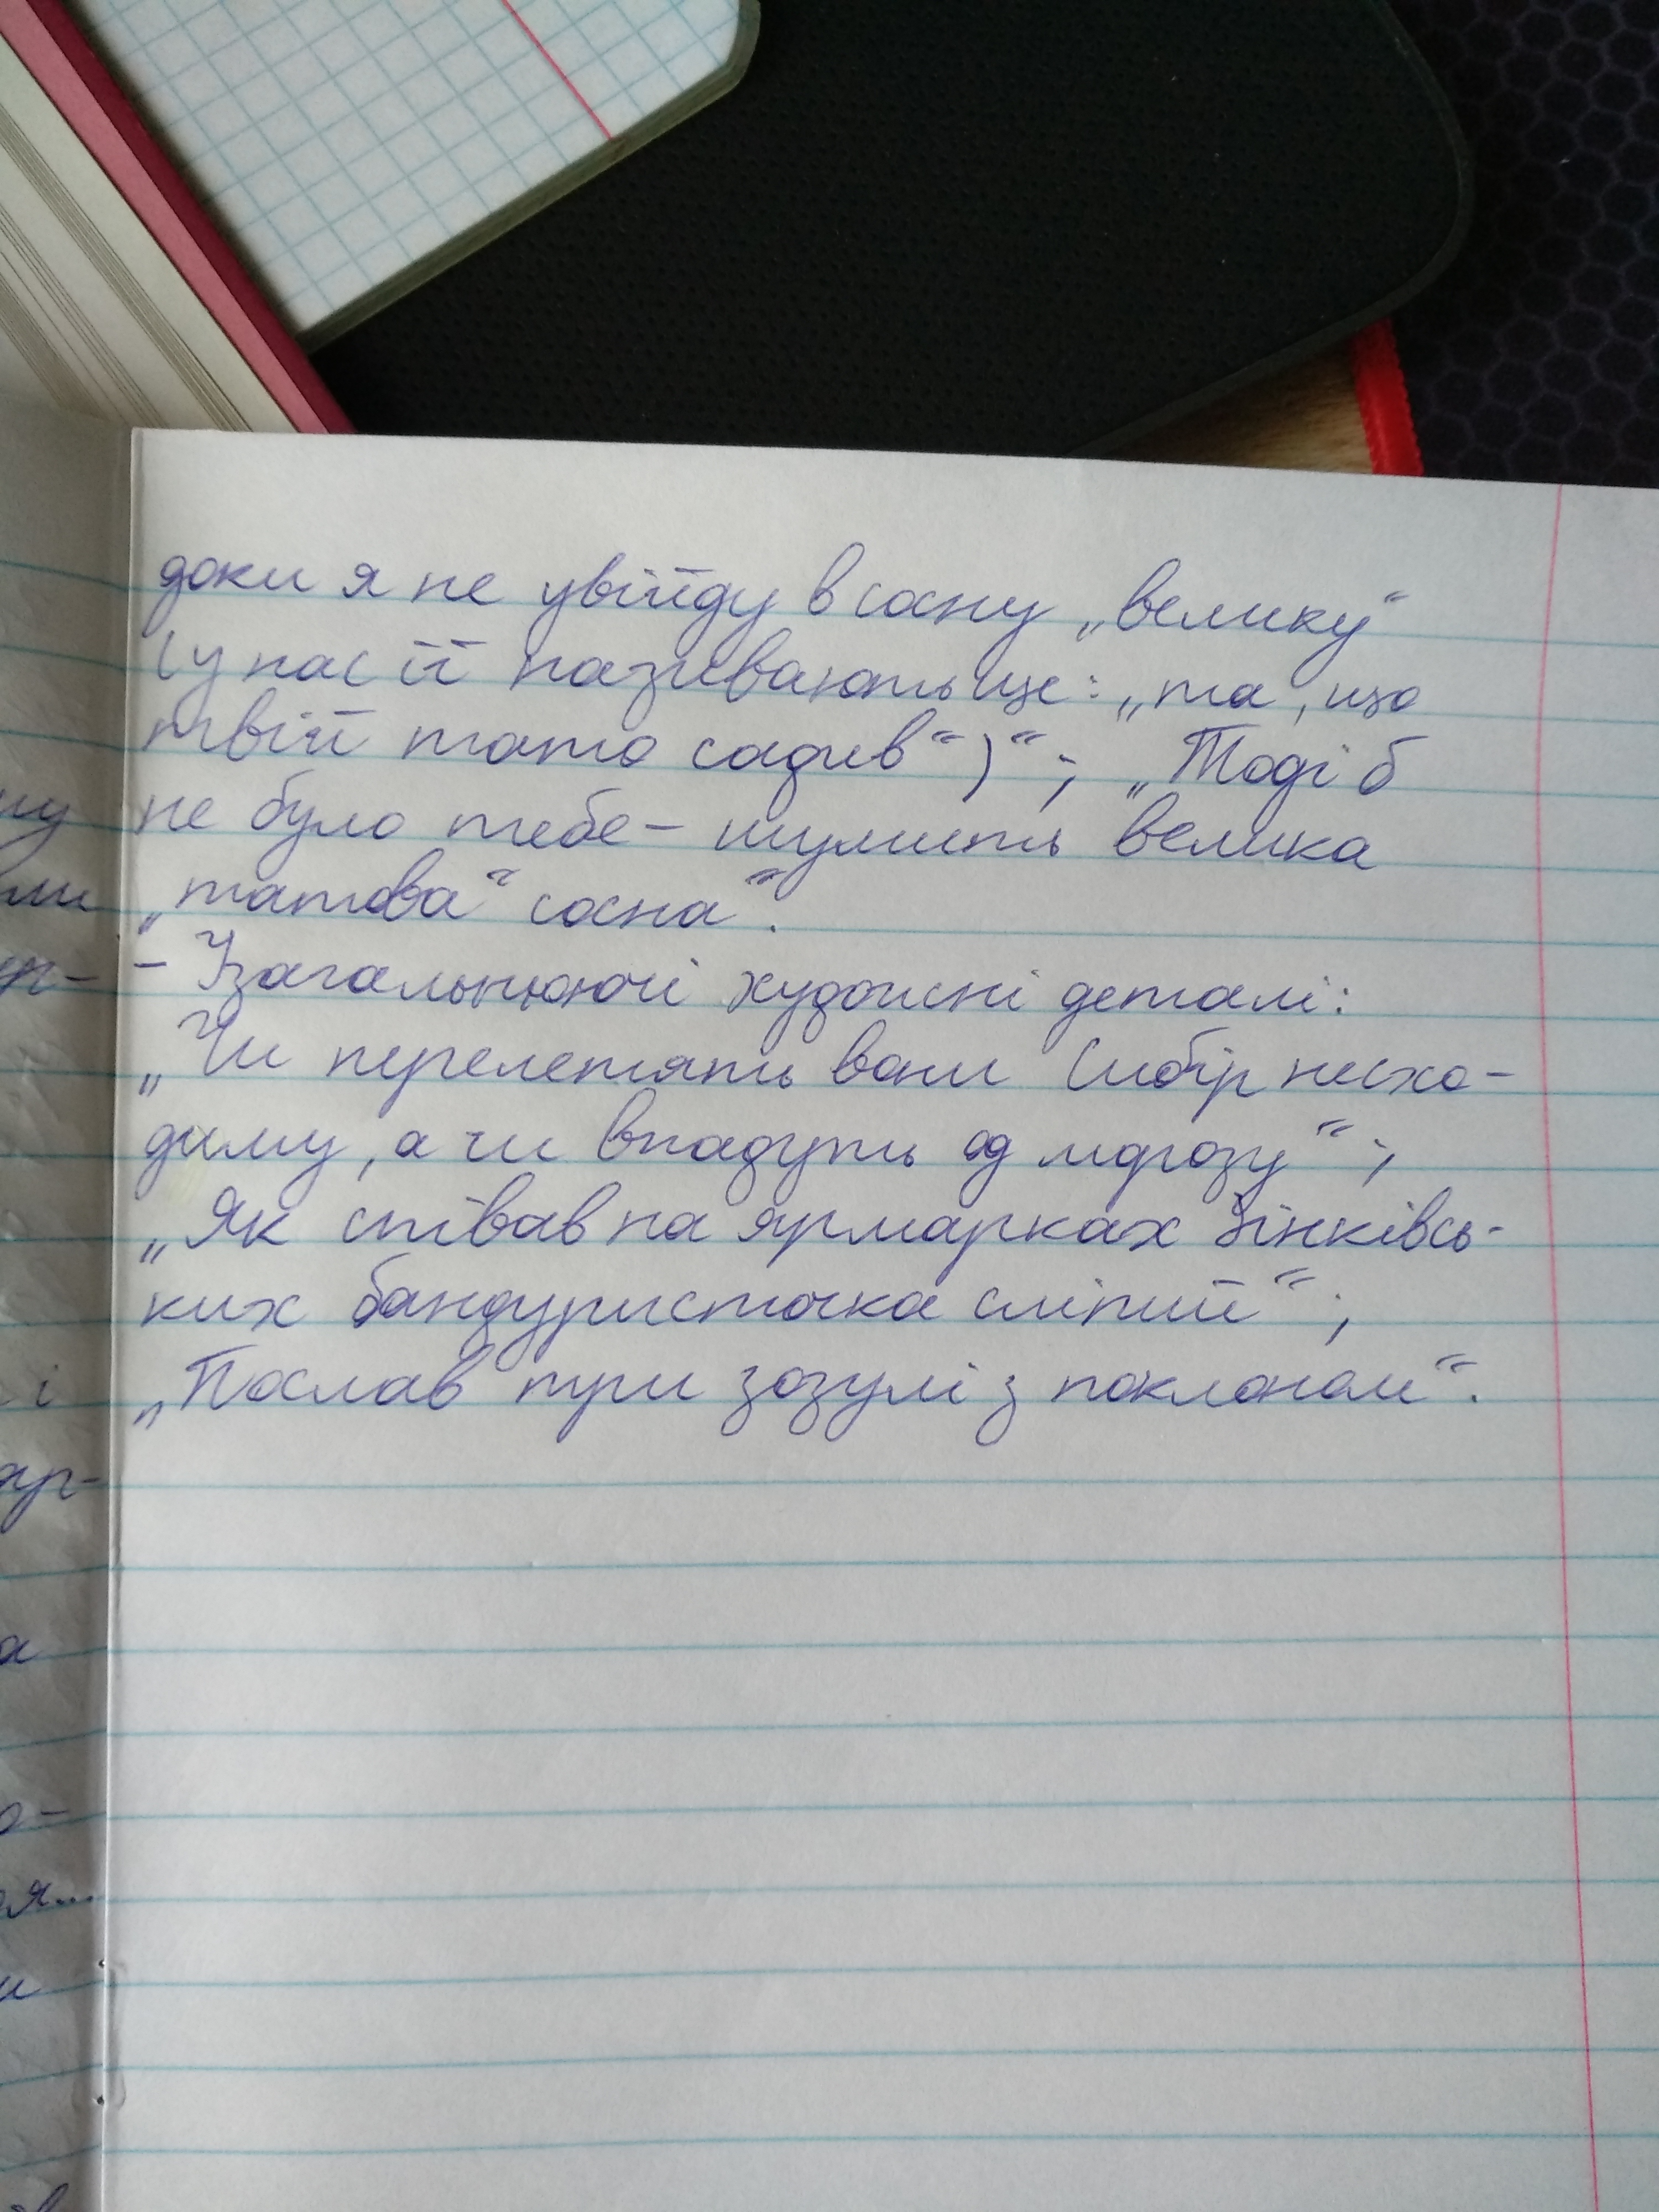 доки я не увійду в сосну „велику"
(у нас її називають ще: „та, що
твій тато садив")"; „Тоді б
не було тебе – шумить велика
„татова" сосна".
– Узагальнюючі художні деталі:
„Чи перелетять вони Сибір несхо-
диму, а чи впадуть од морозу";
„Як співав на ярмарках Зінківсь-
ких бандуристочка сліпий";
„Послав три зозулі з поклоном".